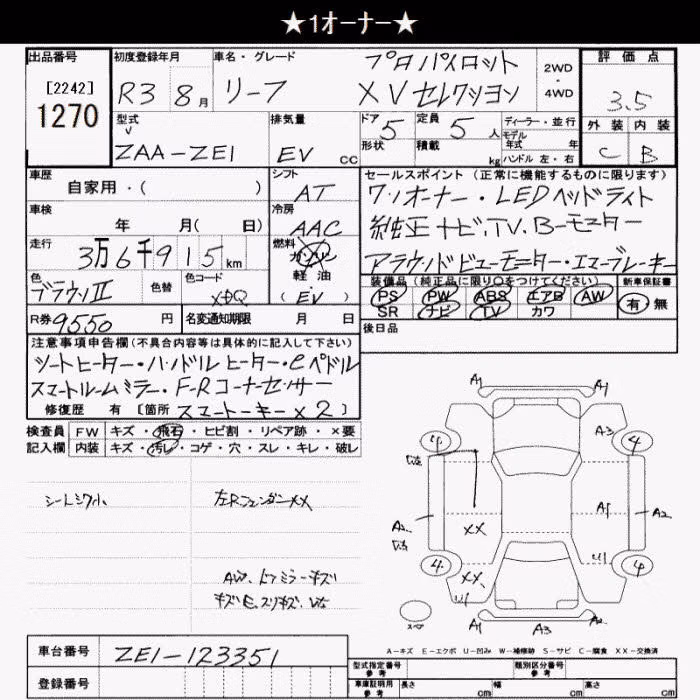 ★1オーナー★
出品番号 初度登録年月 車名・グレード 評価点
[2242]
1270
R3 8月 リーフ プロパイロット
XVセレクション
2WD・4WD
3.5
外装 内装
C B
型式 排気量 ドア 定員 ディーラー・並行
ZAA-ZE1 EV CC 5 5人 モデル年式 年
形状 積載 kg ハンドル 左・右
車歴 シフト セールスポイント (正常に機能するものに限ります)
自家用・( ) AT ワンオーナー・LEDヘッドライト
車検 冷房 純正ナビ、TV、Bーモニター
年 月( 日) AAC
走行 燃料 アラウンドビューモニター・エマーブレーキ
3万6千915km ガソリン
軽油・
(EV)
色 色替 色コード 装備品 (純正品に限り○をつけてください) 新車保証書
ブラウンII PS PW ABS エアB AW 有 無
SR ナビ TV カワ
R券 9550円 名変通知期限 月 日 後日品
注意事項申告欄(不具合内容等は具体的に記入して下さい)
シートヒーター・ハンドルヒーター・eペドル
スマートルームミラー・F-Rコーナーセンサー
修復歴 有 [箇所 スマートーキー×2]
検査員 FW キズ・飛石・ヒビ割・リペア跡・×要
記入欄 内装 キズ・汚レ・コゲ・穴・スレ・キレ・破レ
シートシワ小 左Rフェンダーxx
AW、ドアミラーキズ
A1 A1
4 A3 4
A2 XX A1 A2
4 XX U1 4
U1
A1 A3 A2
A-キズ E-エクボ U-凹み W-補修跡 S-サビ C-腐食 XX-交換済
車台番号 ZE1-123351
登録番号
型式指定番号 参考 類別区分番号 参考
車庫証明用 参考 長さ cm 幅 cm 高さ cm